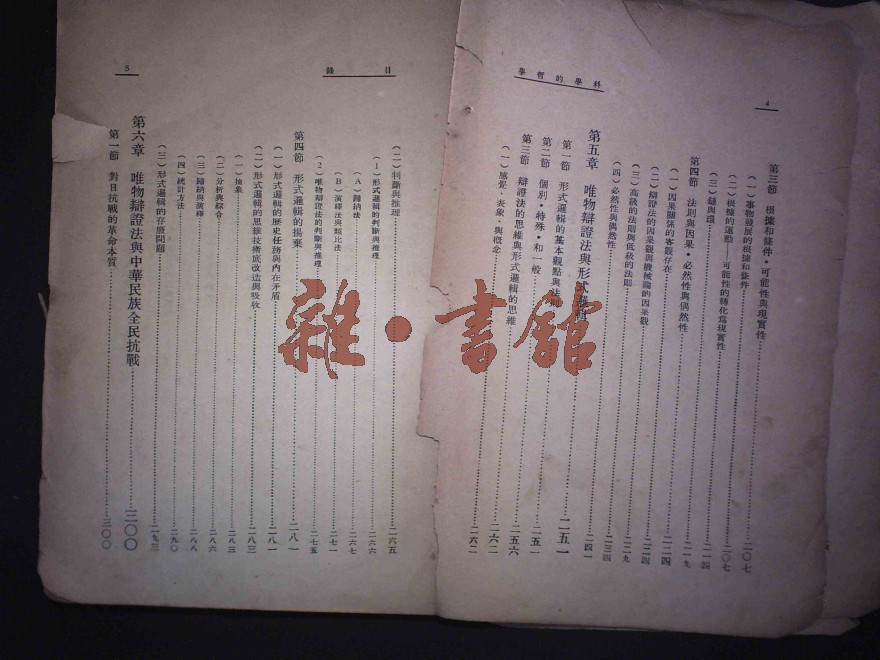 科學的哲學
4
第三節 根據和條件・可能性與現實性 二〇七
(一)事物發展的根據和條件 二〇七
(二)根據的運動——可能性的轉化爲現實性
(三)鏈與環 二一四
第四節 法則與因果・必然性與偶然性 二一九
(一)因果關係的客觀存在 二二四
(二)辯證法的因果觀與機械論的因果觀 二二四
(三)高級的法則與低級的法則 二二九
(四)必然性與偶然性 二三四
二四一
第五章 唯物辯證法與形式邏輯 二五一
第一節 形式邏輯的基本觀點與法則 二五一
第二節 個別・特殊・和一般 二五六
第三節 辯證法的思維與形式邏輯的思維 二六二
(一)感覺、表象、與概念 二六二
目錄
5
(二)判斷與推理 二六五
(1)形式邏輯的判斷與推理 二六六
(A)歸納法 二六七
(B)演繹法與類比法 二七一
(2)唯物辯證法的判斷與推理 二七五
第四節 形式邏輯的揚棄 二八一
(一)形式邏輯的歷史任務與內在矛盾 二八一
(二)形式邏輯的思維技術底改造與吸收 二八三
(一)抽象 二八三
(二)分析與綜合 二八六
(三)歸納與演繹 二八八
(四)統計方法 二九〇
(三)形式邏輯的存廢問題 二九三
第六章 唯物辯證法與中華民族全民抗戰 三〇〇
第一節 對日抗戰的革命本質 三〇〇
雜・書館